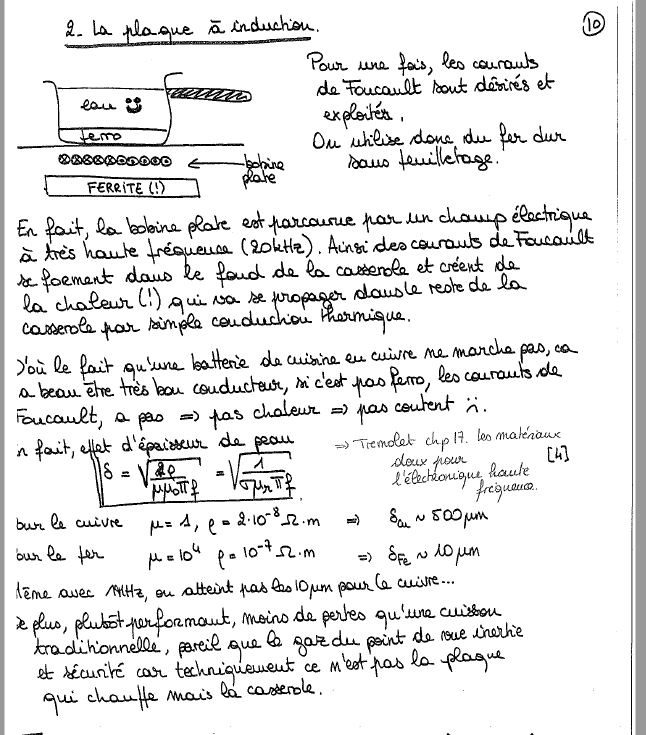 2 - La plaque à induction.
10
eau
ferro
bobine
plate
FERRITE (!)
Pour une fois, les courants
de Foucault sont désirés et
exploités.
On utilise donc du fer dur
sans feuilletage.
En fait, la bobine plate est parcourue par un champ électrique
à très haute fréquence (20kHz). Ainsi des courants de Foucault
se forment dans le fond de la casserole et créent de
la chaleur (!) qui va se propager dans le reste de la
casserole par simple conduction thermique.
D'où le fait qu'une batterie de cuisine en cuivre ne marche pas, ca
a beau être très bon conducteur, si c'est pas ferro, les courants de
Foucault, a pas => pas chaleur => pas content :(.
n fait, effet d'épaisseur de peau
δ = √(2ρ / μμ₀πf) = √(1 / σμᵣπf)
=> Tremolet chp 17. les matériaux
doux pour
l'électronique haute
fréquence.
[4]
Pour le cuivre μ = 1, ρ = 2·10⁻⁸ Ω·m => δcu ~ 500μm
Pour le fer μ = 10⁴ ρ = 10⁻⁷ Ω·m => δFe ~ 10μm
Même avec 1MHz, on atteint pas les 10μm pour le cuivre...
De plus, plutôt performant, moins de pertes qu'une cuisson
traditionnelle, pareil que le gaz du point de vue inertie
et sécurité car techniquement ce n'est pas la plaque
qui chauffe mais la casserole.